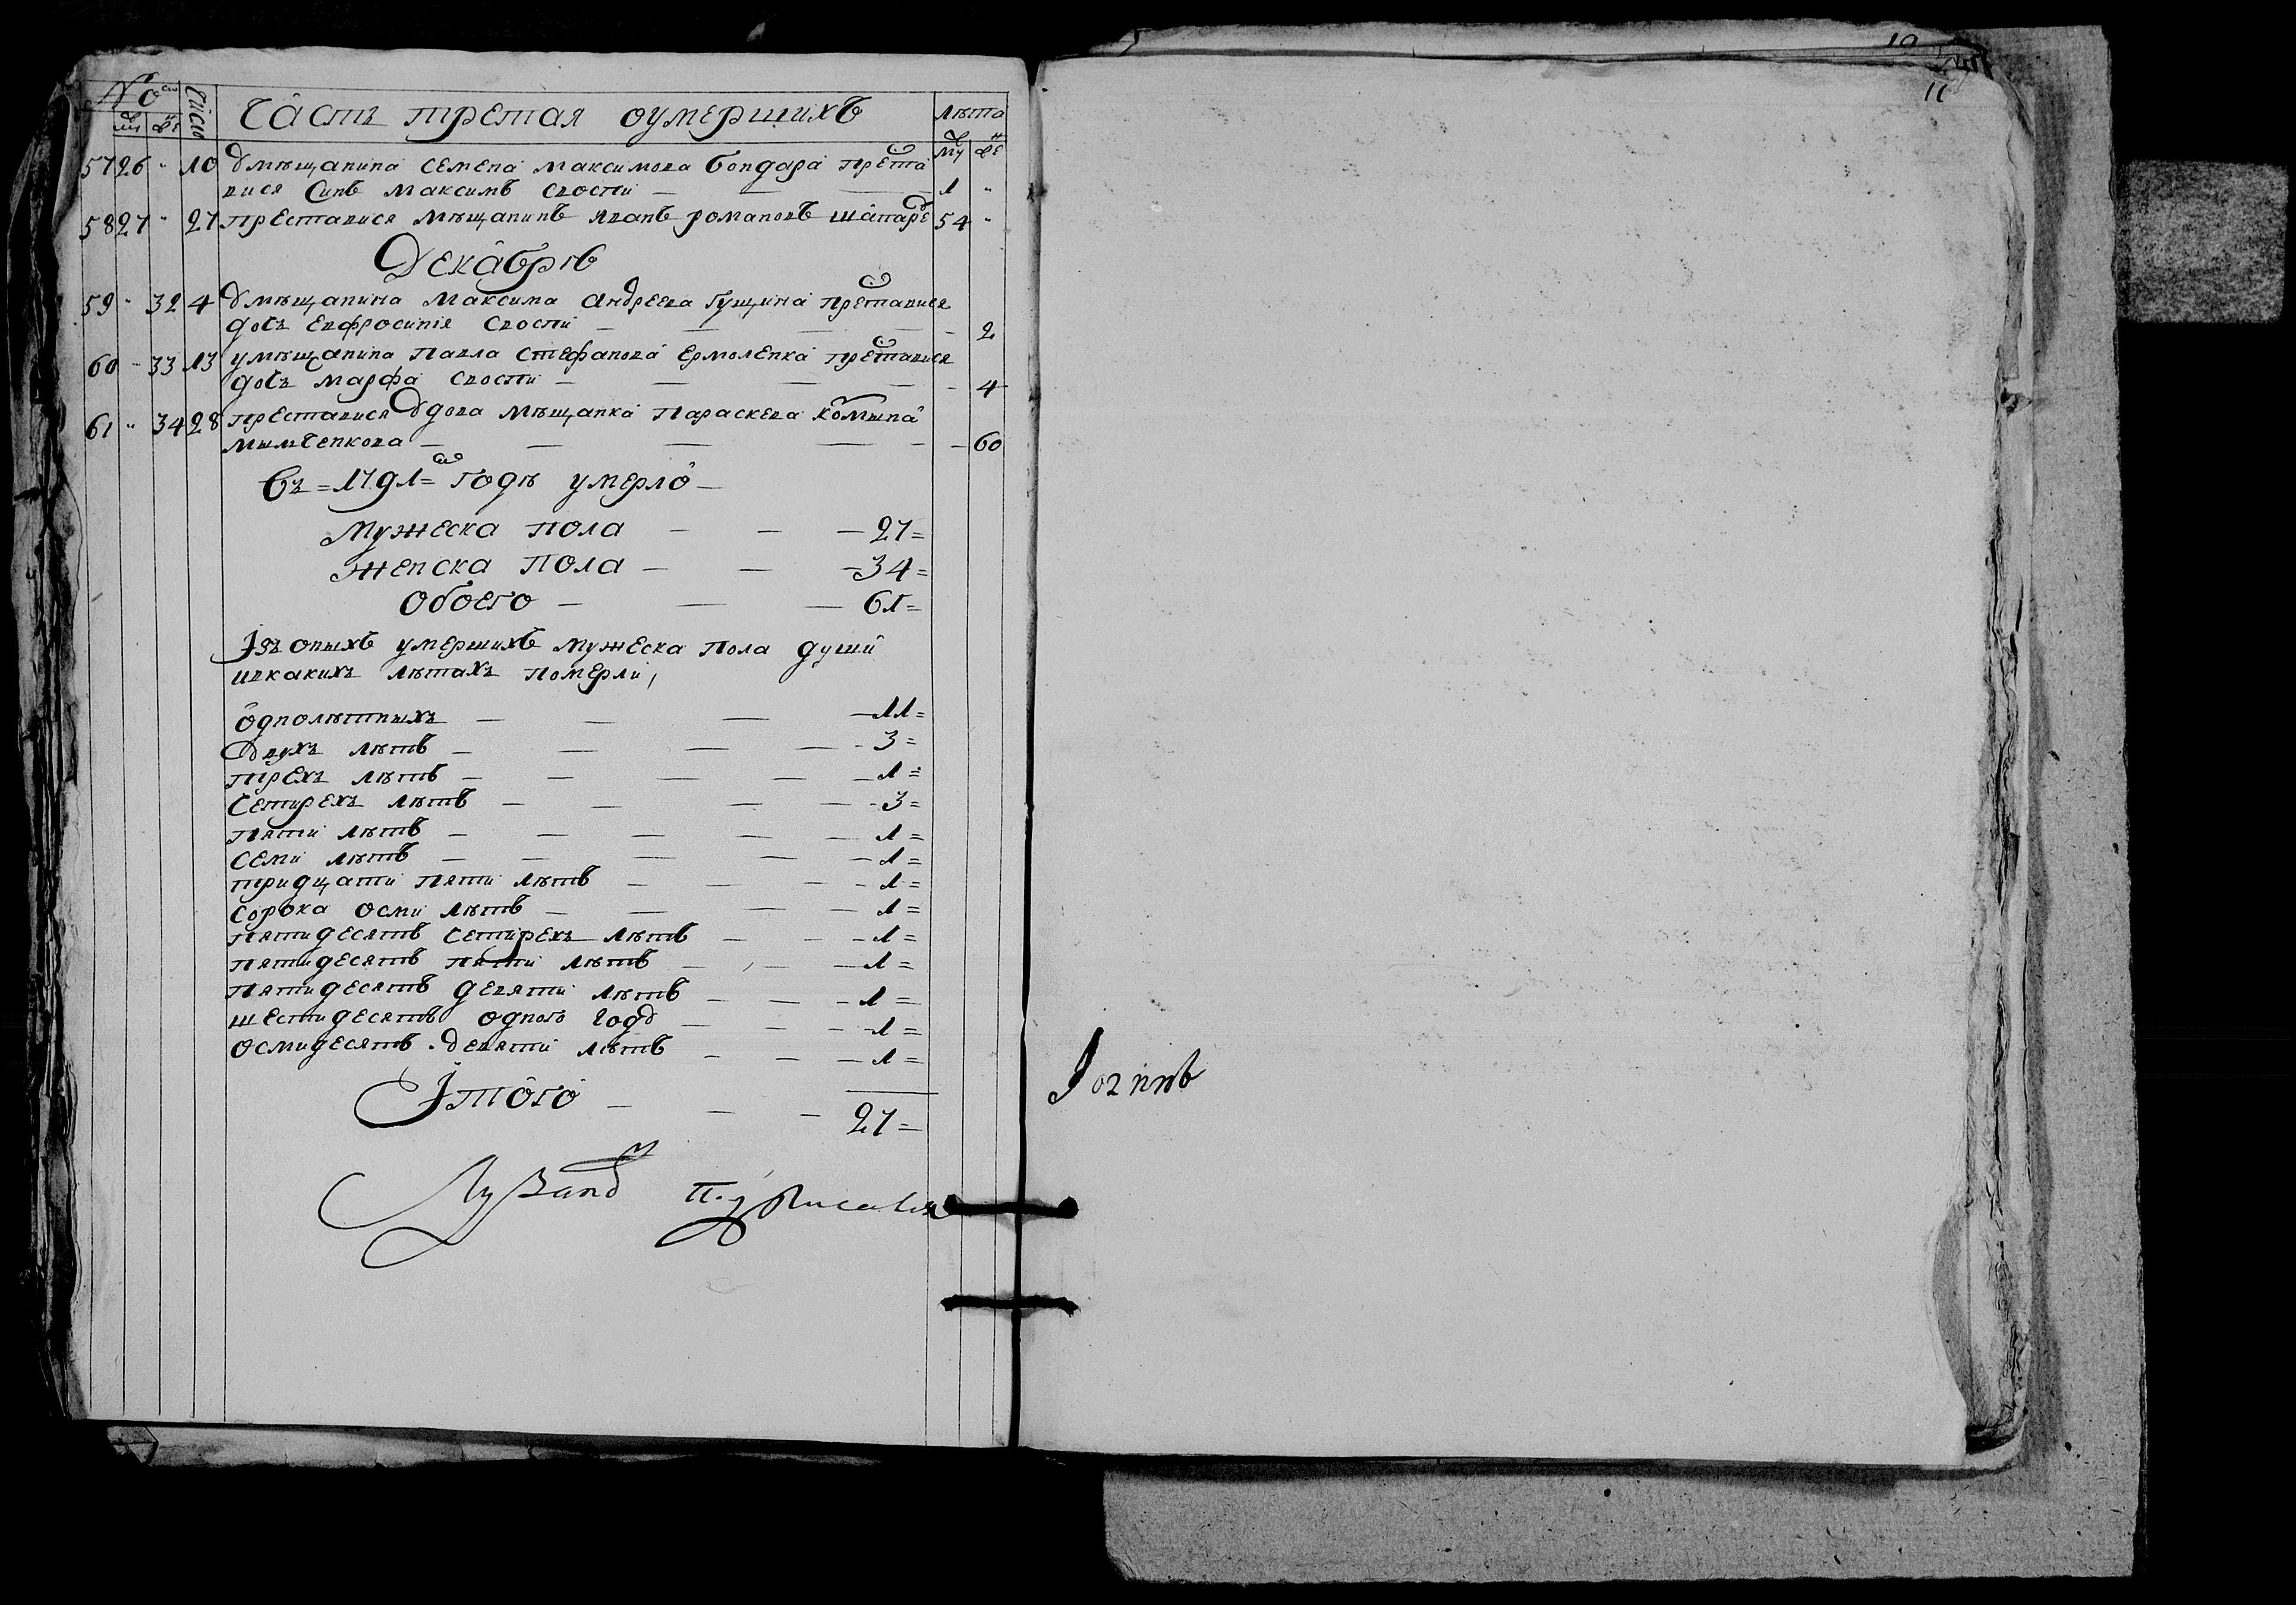 No
Число
Часть третая оумершихъ
лѣта
му же
57 26 " 10 Умѣщанина Семена Максимова Бондара преста
вися Синъ Максимъ Скостий — 1 "
58 27 " 27 Преставися мѣщанинъ Иванъ Романовъ 54 "
Декабрѣ
59 " 32 4 Умѣщанина Максима Андреева Гущина преставися
дочь Евфросинія Скостий — 2
60 – 33 13 умѣщанина Павла Стефанова Ермоленка преставися
дочь Марфа Скостий — 4
61 " 34 28 преставися Вдова мѣщанка Параскева
— 60
Въ = 1791 = годѣ умерло —
Мужеска пола — — — 27 =
Женска пола — — — 34 =
Обоего — — — 61 =
Ізъ оныхъ умершихъ мужеска пола души
ивкакихъ лѣтахъ померли,
однолѣтныхъ — — — — 11 =
Двухъ лѣтъ — — — — 3 =
трехъ лѣтъ — — — — 1 =
Четирехъ лѣтъ — — — — 3 =
пяти лѣтъ — — — — 1 =
семи лѣтъ — — — — 1 =
тридцати пяти лѣтъ — — — 1 =
сорока осми лѣтъ — — — 1 =
пятидесятъ четирехъ лѣтъ — — — 1 =
пятидесятъ пяти лѣтъ — — — 1 =
пятидесятъ девяти лѣтъ — — — 1 =
шестидесятъ одного годъ — — — 1 =
осмидесятъ девяти лѣтъ — — — 1 =
Ітого — — — 27 =
11